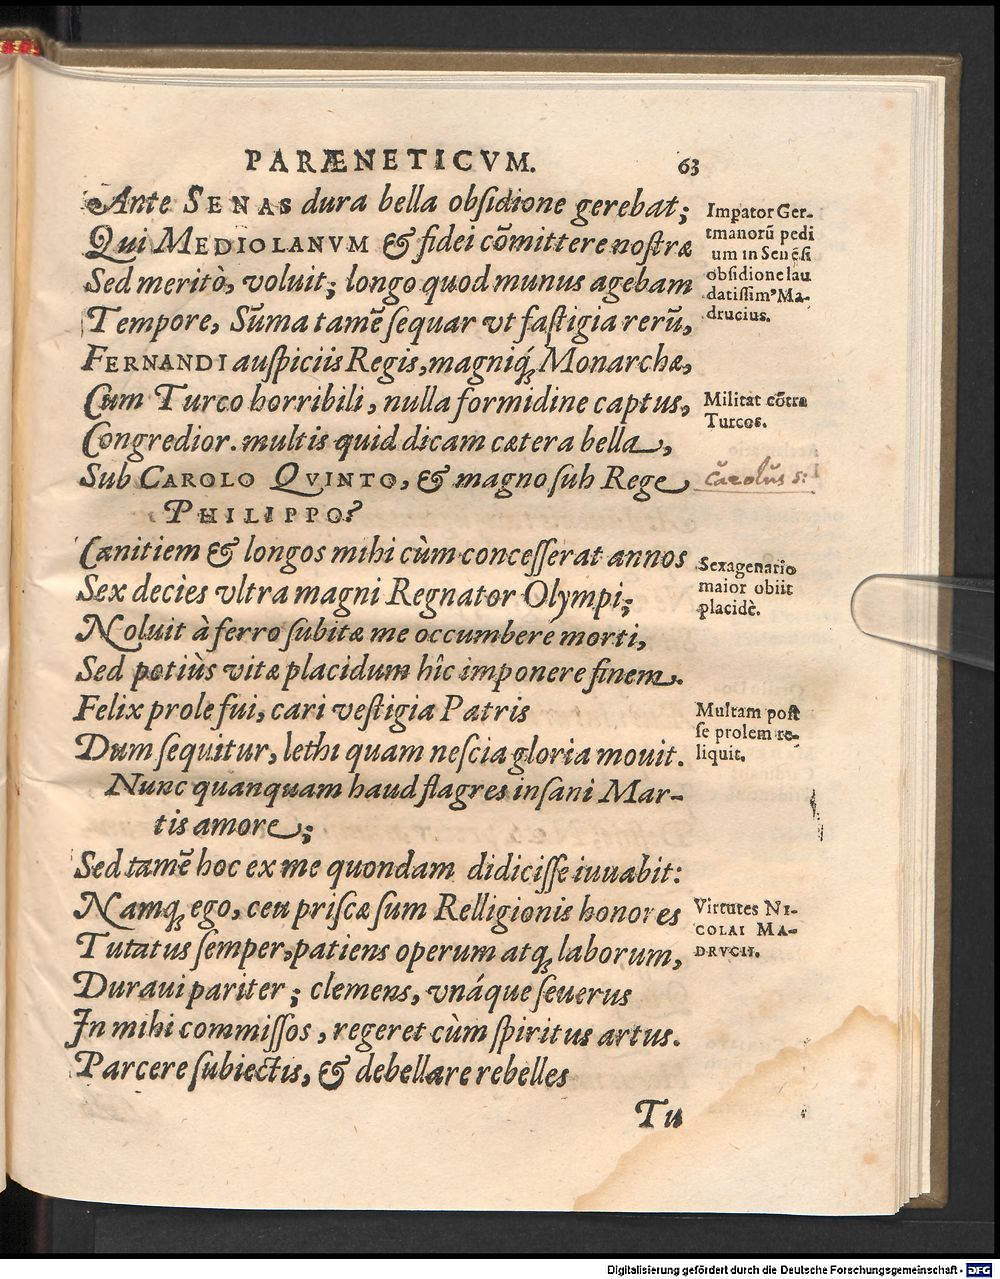 PARÆNETICVM. 63
Ante SENAS dura bella obſidione gerebat;
Qui MEDIOLANVM & fidei cõmittere noſtræ
Sed meritò, voluit; longo quod munus agebam
Tempore, Sũma tamẽ ſequar vt faſtigia rerũ,
FERNANDI auſpiciis Regis, magniq́; Monarchæ,
Cum Turco horribili, nulla formidine captus,
Congredior. multis quid dicam cætera bella,
Sub CAROLO QVINTO, & magno ſub Rege
PHILIPPO?
Canitiem & longos mihi cùm conceſſerat annos
Sex decies vltra magni Regnator Olympi;
Noluit à ferro ſubitæ me occumbere morti,
Sed potiùs vitæ placidum hîc imponere finem.
Felix prole fui, cari veſtigia Patris
Dum ſequitur, lethi quam neſcia gloria mouit.
Nunc quanquam haud flagres inſani Mar-
tis amore;
Sed tamẽ hoc ex me quondam didiciſſe iuuabit:
Namq; ego, ceu priſcæ ſum Relligionis honores
Tutatus ſemper, patiens operum atq; laborum,
Duraui pariter; clemens, vnáque ſeuerus
In mihi commiſſos, regeret cùm ſpiritus artus.
Parcere ſubiectis, & debellare rebelles
Tu
Impator Ger-
manorũ pedi
um in Senẽſi
obſidione lau
datiſſim⁹ Ma-
drucius.
Militat cõtra
Turcos.
Cărolŭs 5:
Sexagenario
maior obiit
placidè.
Multam poſt
ſe prolem re-
liquit.
Virtutes NI-
COLAI MA-
DRVCII.
Digitalisierung gefördert durch die Deutsche Forschungsgemeinschaft - DFG